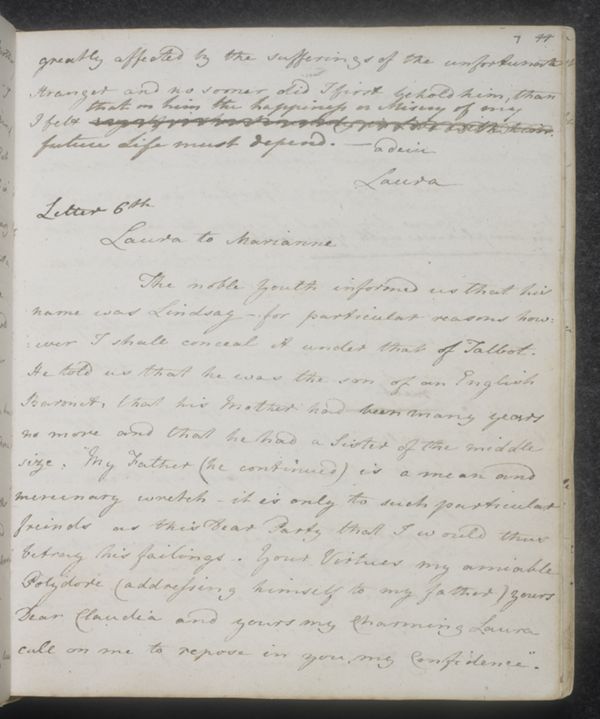 7 44
greatly affected by the sufferings of the unfortunate
stranger and no sooner did I first behold him, than
that on him the happiness or Misery of my
I felt
future Life must depend. — adeiu
Laura
Letter 6th
Laura to Marianne
The noble Youth informed us that his
name was Lindsay — for particular reasons how:
:ever I shall conceal it under that of Talbot.
He told us that he was the son of an English
Baronet, that his Mother had been many years
no more and that he had a Sister of the middle
size. "My Father (he continued) is a mean and
mercenary wretch — it is only to such particular
freinds as this Dear Party that I would thus
betray his failings. Your Virtues my amiable
Polydore (addressing himself to my father) yours
Dear Claudia and yours my Charming Laura
call on me to repose in you, my Confidence".